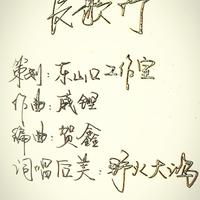 长歌行
策划：东山口工作室
作曲：威狸
编曲：贺鑫
词唱后美：野火大鸿